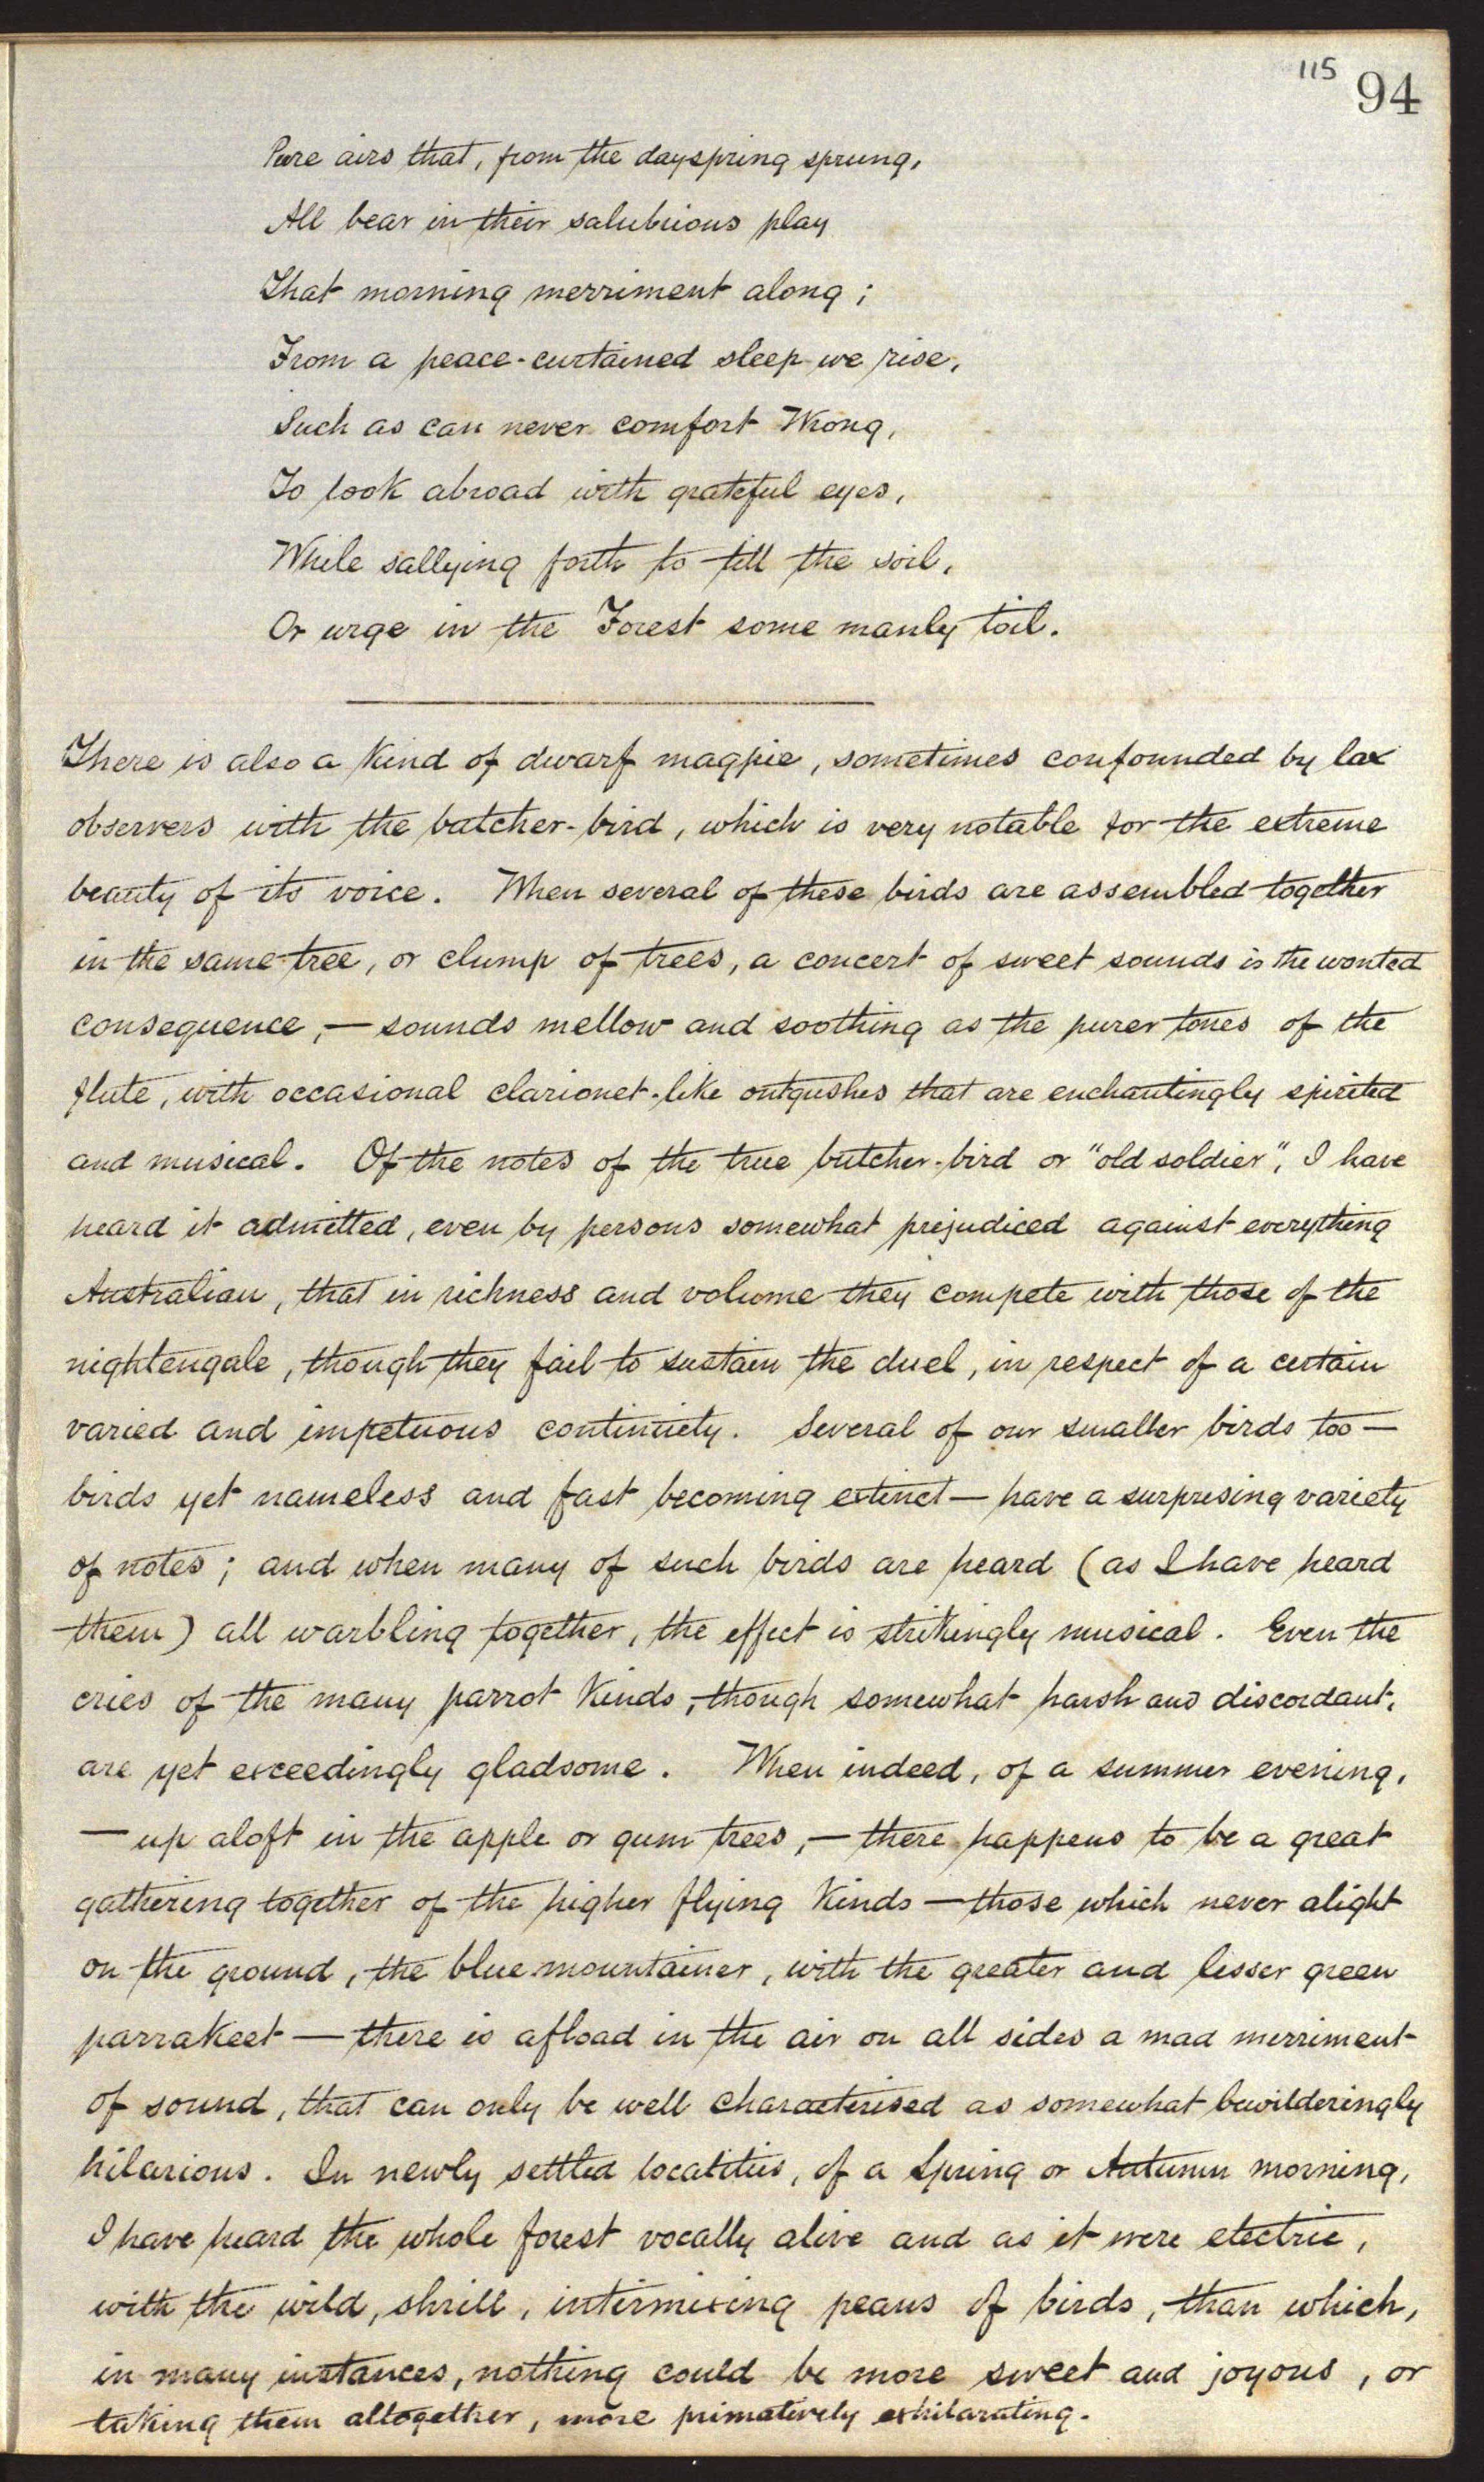 115 94
Pure airs that, from the dayspring sprung,
All bear in their salubrious play
That morning merriment along;
From a peace-curtained sleep we rise,
Such as can never comfort Wrong,
To look abroad with grateful eyes,
While sallying forth to till the soil,
Or urge in the Forest some manly toil.
There is also a kind of dwarf magpie, sometimes confounded by lax
observers with the batcher-bird, which is very notable for the extreme
beauty of its voice. When several of these birds are assembled together
in the same tree, or clump of trees, a concert of sweet sounds is the wonted
consequence,— sounds mellow and soothing as the purer tones of the
flute, with occasional clarionet-like outgushes that are enchantingly spirited
and musical. Of the notes of the true butcher-bird or "old soldier", I have
heard it admitted, even by persons somewhat prejudiced against everything
Australian, that in richness and volume they compete with those of the
nightengale, though they fail to sustain the duel, in respect of a certain
varied and impetuous continuity. Several of our smaller birds too—
birds yet nameless and fast becoming extinct— have a surprising variety
of notes; and when many of such birds are heard (as I have heard
them) all warbling together, the effect is strikingly musical. Even the
cries of the many parrot kinds, though somewhat harsh and discordant,
are yet exceedingly gladsome. When indeed, of a summer evening,
— up aloft in the apple or gum trees,— there happens to be a great
gathering together of the higher flying kinds — those which never alight
on the ground, the blue mountainer, with the greater and lesser green
parrakeet — there is afload in the air on all sides a mad merriment
of sound, that can only be well characterised as somewhat bewilderingly
hilarious. In newly settled localities, of a Spring or Autumn morning,
I have heard the whole forest vocally alive and as it were electric,
with the wild, shrill, intermixing peans of birds, than which,
in many instances, nothing could be more sweet and joyous, or
taking them altogether, more primatively exhilarating.